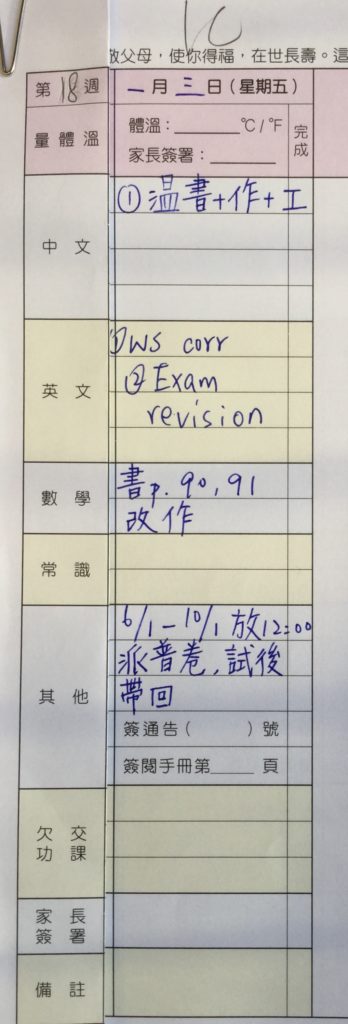 1C
敬父母，使你得福，在世長壽。這
第18週 一月三日(星期五)
量體溫 體溫：______℃/℉ 完成
家長簽署：______
中文 ①温書+作+工
英文 ①WS corr
②Exam
revision
數學 書p.90,91
改作
常識
其他 6/1-10/1放12:00
派普卷,試後
帶回
簽通告( )號
簽閱手冊第____頁
欠交
功課
家長
簽署
備註